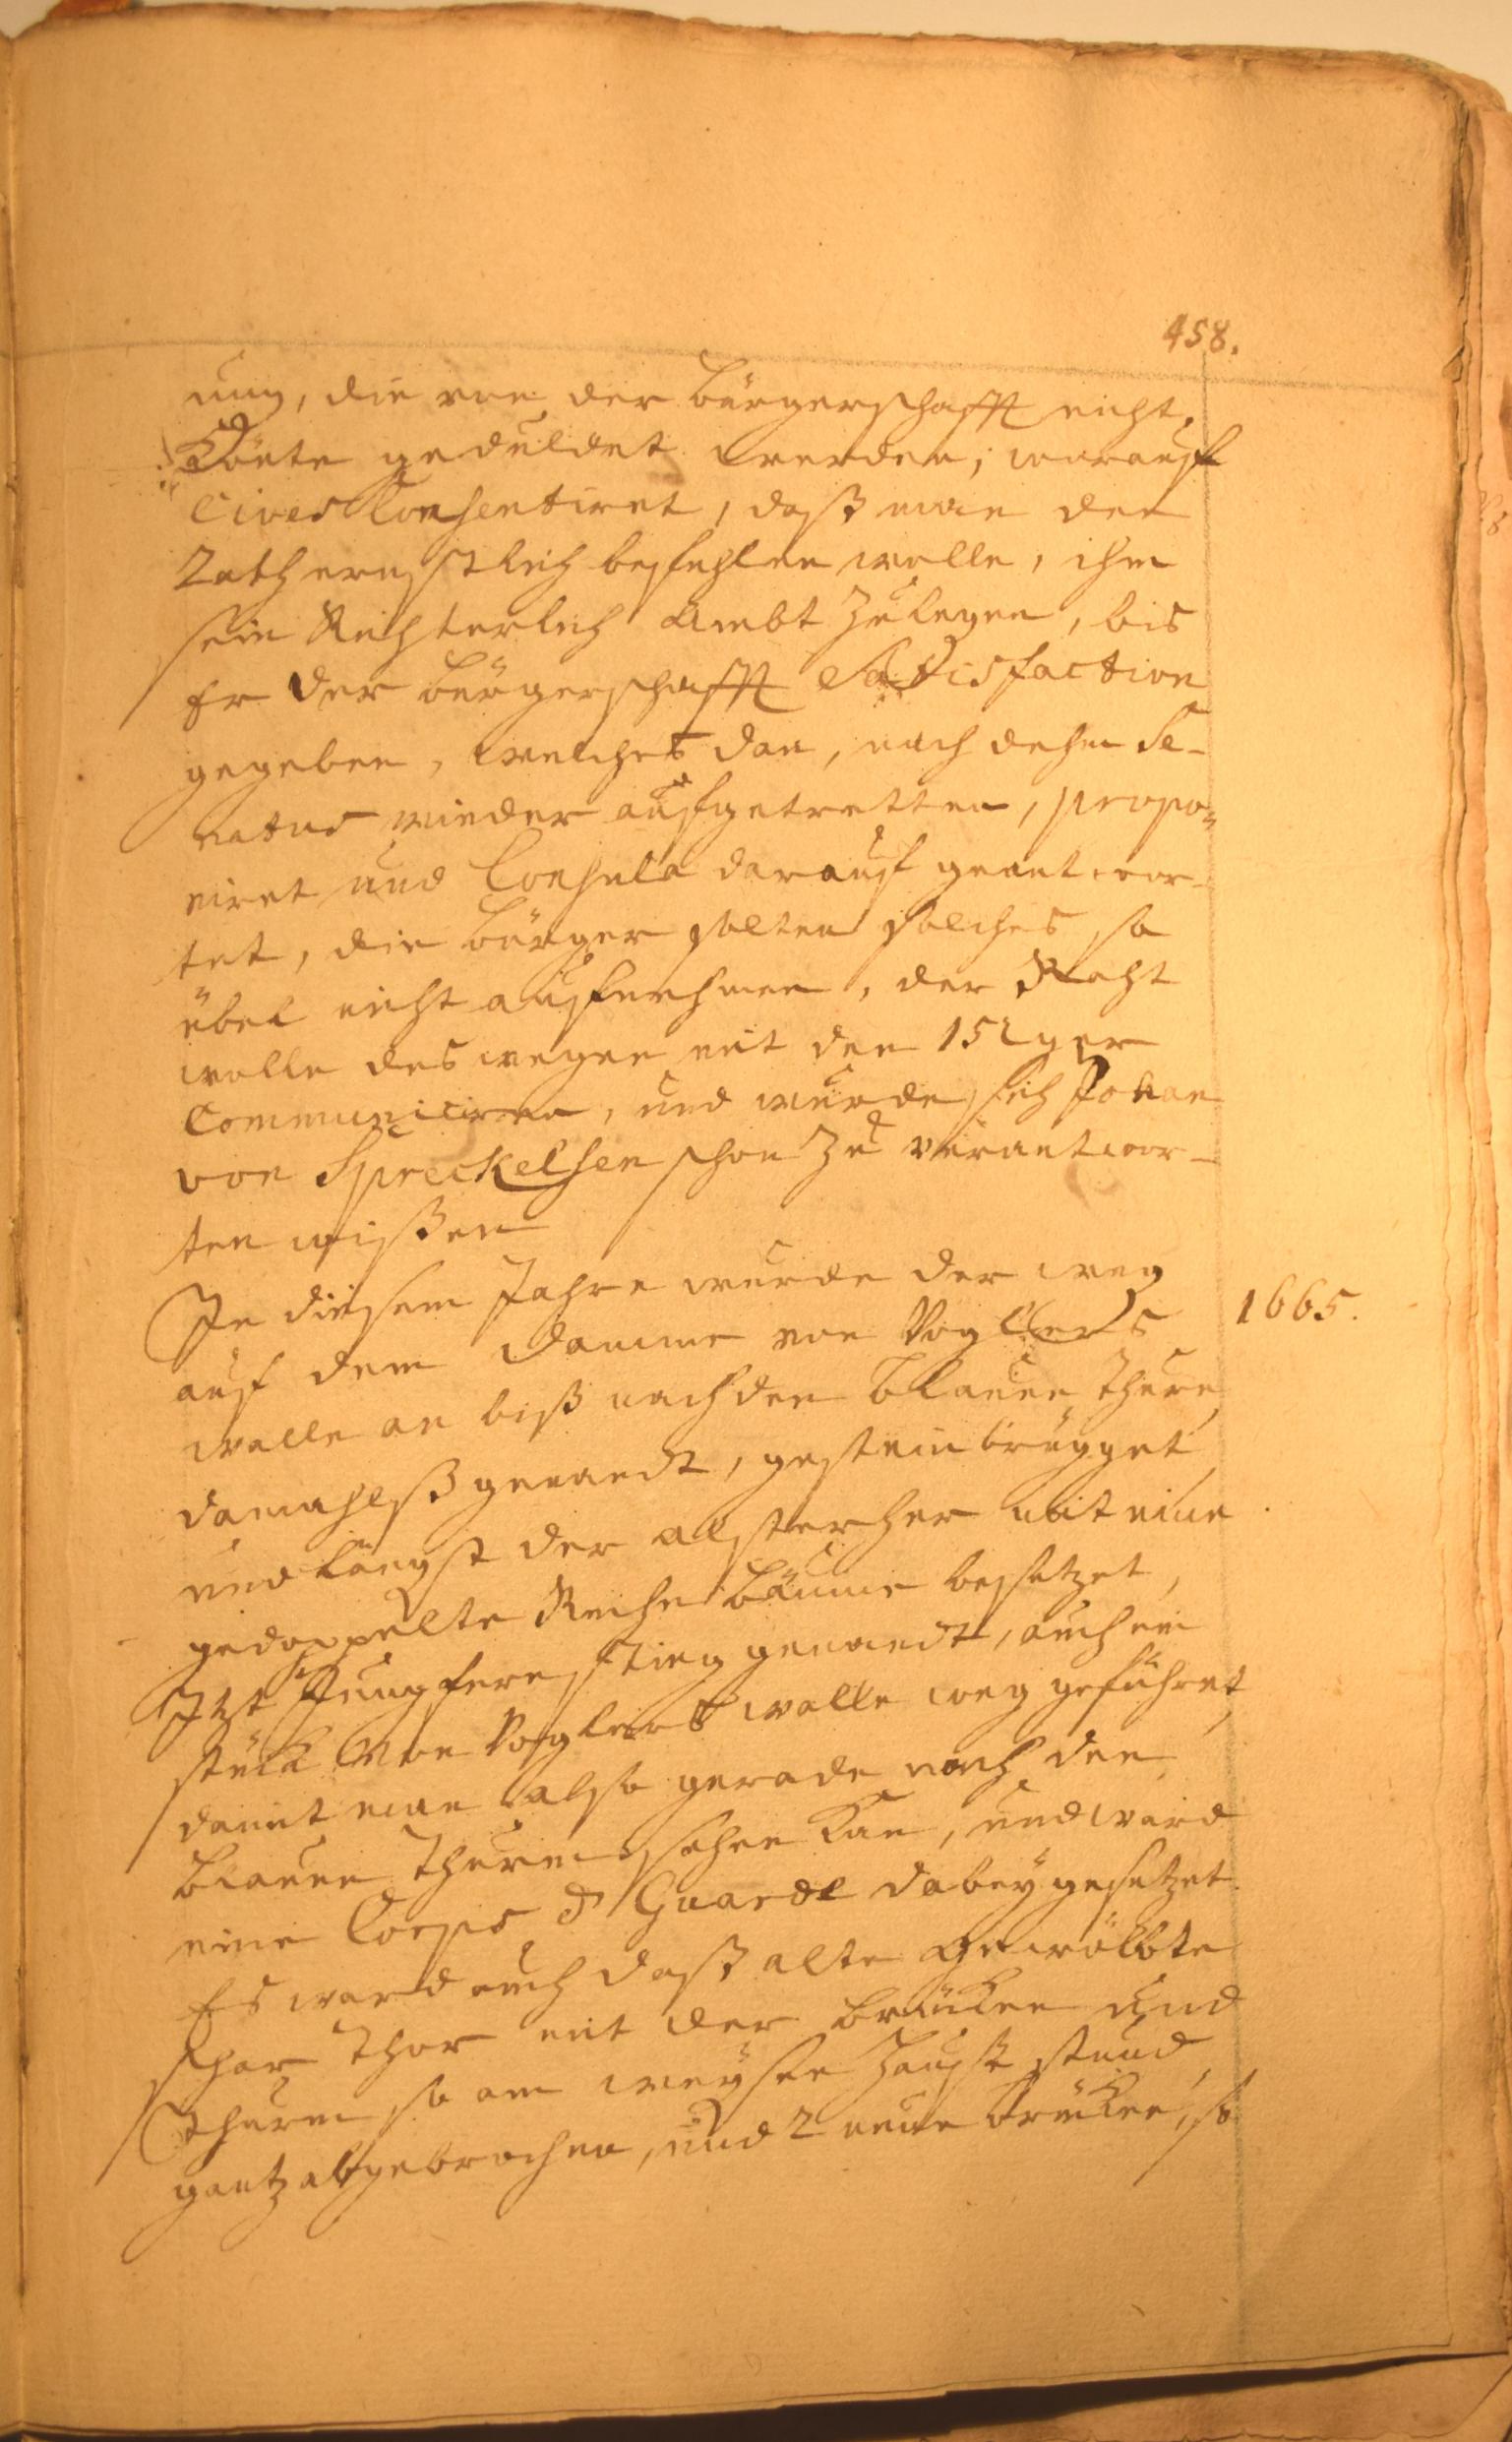 458.
nung, die von der Bürgerschafft nicht
Könte geduldet werden, worauf
Cives Consentiret, daß man den
Rath ernstlich befehlen wolle, ihm
sein Richterlich Ambt zu legen, bis
Er der Bürgerschafft Satisfaction
gegeben, welches dan, nach dehm Se-
natus wieder aufgetretten, propo-
niret und Consula darauf geantwor-
tet, die Bürger solten solches so
übel nicht aufnehmen, der Raht
wolle deswegen mit den 15ger
Communiciren, und wurde sich Johan
von Spreckelsen schon zu verantwor-
ten wißen
In diesem Jahre wurde der weg 1665.
auf dem Damme von Voglers
walle an biß nach den Blauen Thurn
damahlß genandt, gesteinbrügget
und längst der alster her mit eine
gedoppelte Reihe Bäume besetzet,
Itzt Jungfernstieg genandt, auch ein
stück von Voglers walle weg geführet,
damit man also gerade nach den
Blauen Thurm sehen kan, und ward
eine Corps d Guarde dabey gesetzet.
Es ward auch daß alte gewölbte
schar Thor mit der Brücken und
Thurm so am weysen Hause stund
gantz abgebrochen, und 2 neue brücken, so